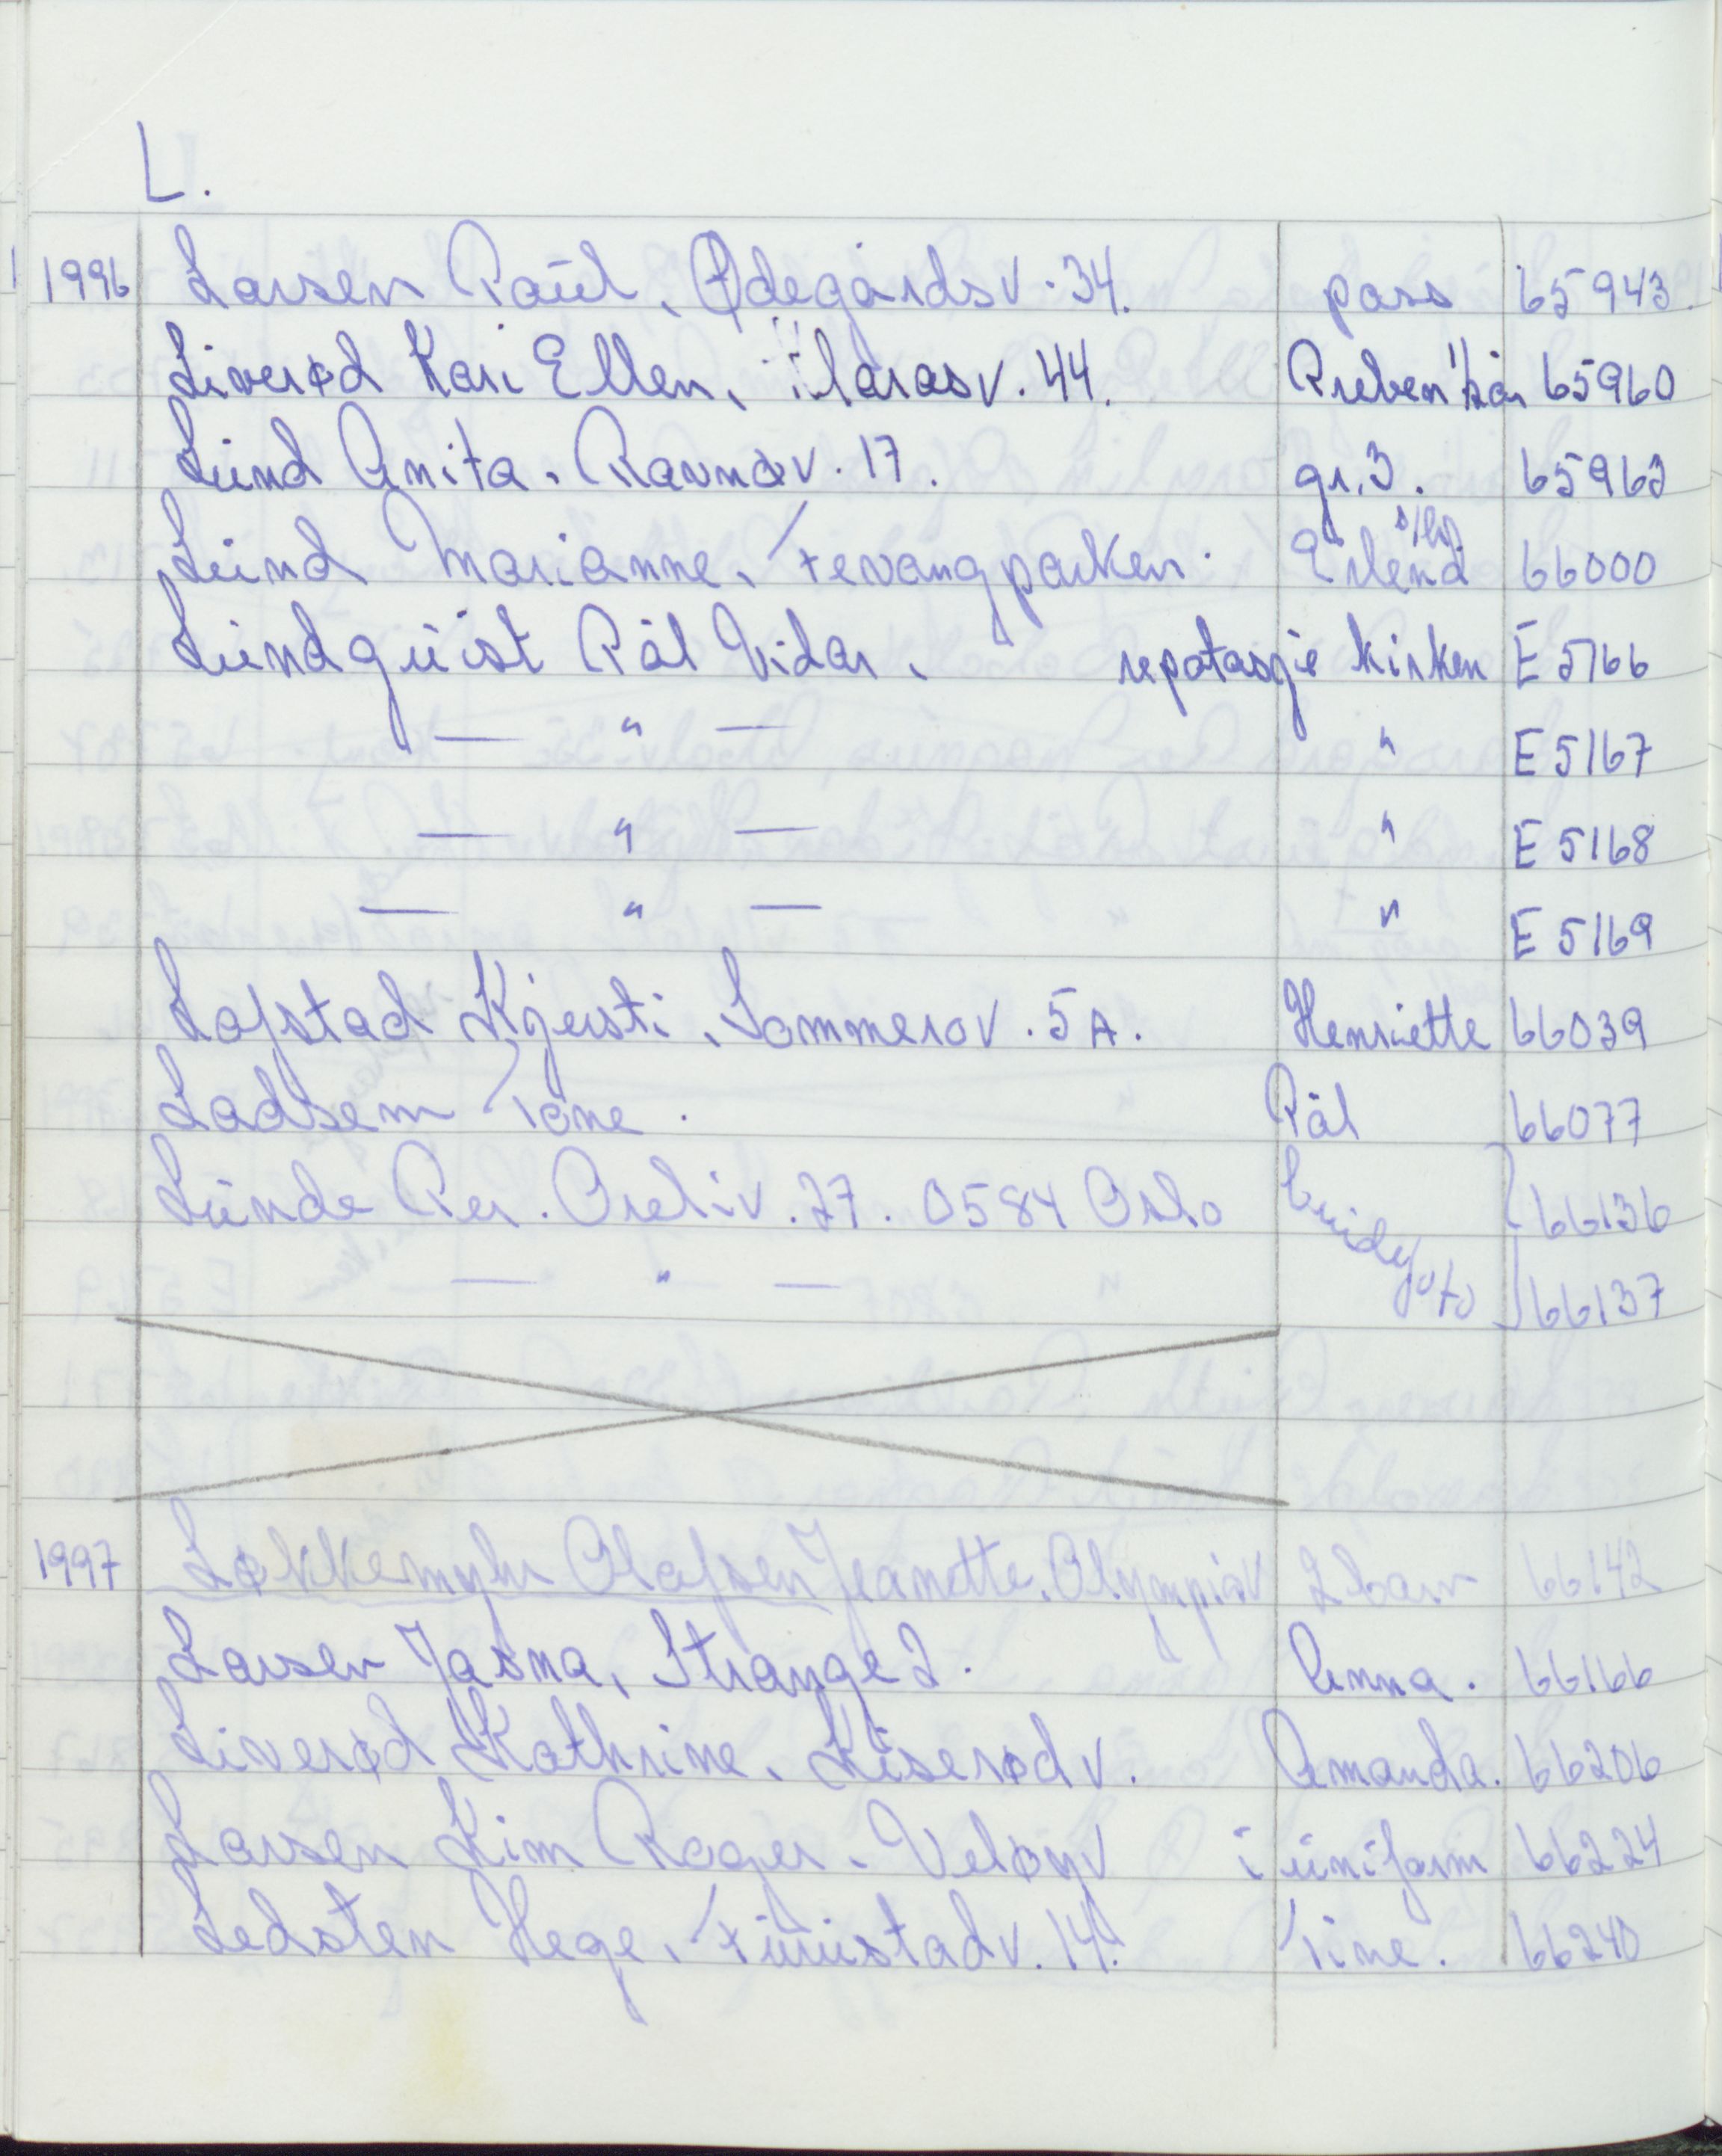 L.
1996 Larsen Paul, Ødegårdsv. 34. pass 65943
Liverød Kari Ellen, v. 44. Preben 65960
Lund Anita, Ravnøv. 17. gr. 3. 65963
Lund Marianne, Fevangparken. Erlend 66000
Lundquist Pål Vidar, repotasje kirken E 5166
— " — " E 5167
— " — " E 5168
— " — " E 5169
Lofstad Kjersti, Sommerov. 5A. Henriette 66039
Ladsem Tone. Pål 66077
Lunde Per. Oreliv. 27. 0584 Oslo 66136
— " — 66137
1997 Løkkemyhr Olafsen Jeanette, Olympiav 2 barn 66142
Larsen Jasna, Strange 2. Anna. 66166
Liverød Kathrine, Luserødv. Amanda. 66206
Larsen Kim Roger, Veløyv i uniform 66224
Ledsten Hege, Furustadv. 14. Tine. 66240